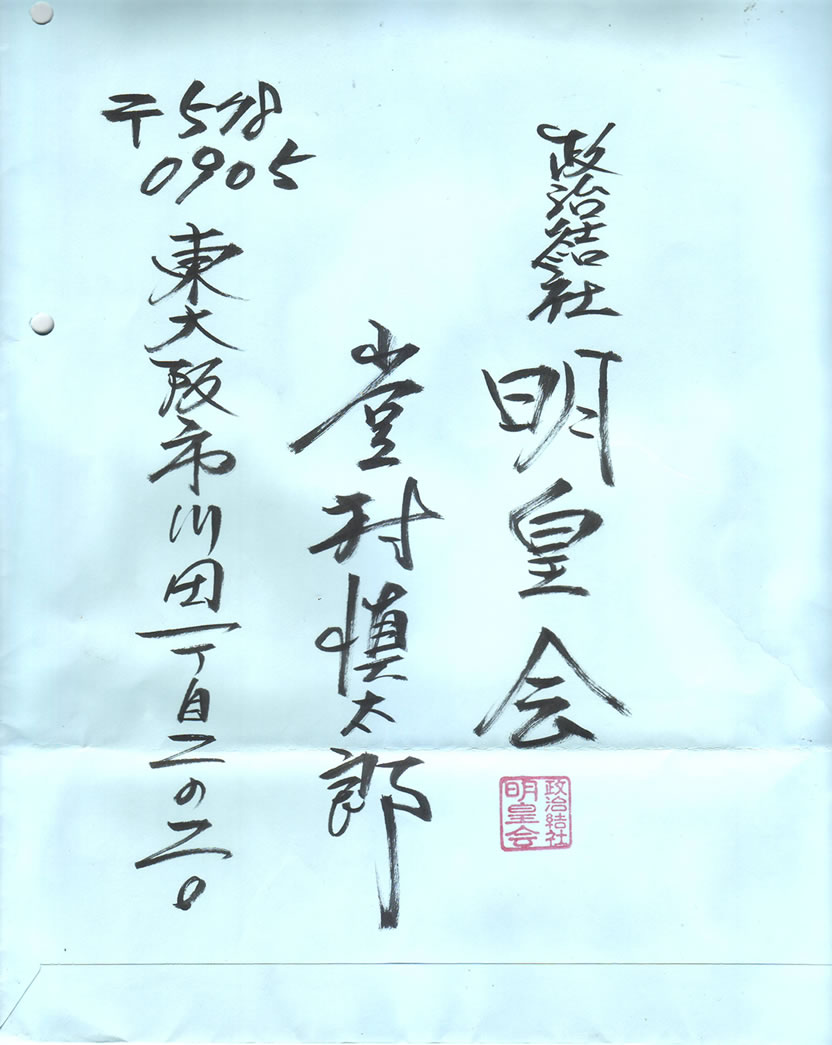 政治結社
明皇会
政治結社
明皇会
堂村慎太郎
〒578
0905
東大阪市川田一丁目二の二〇